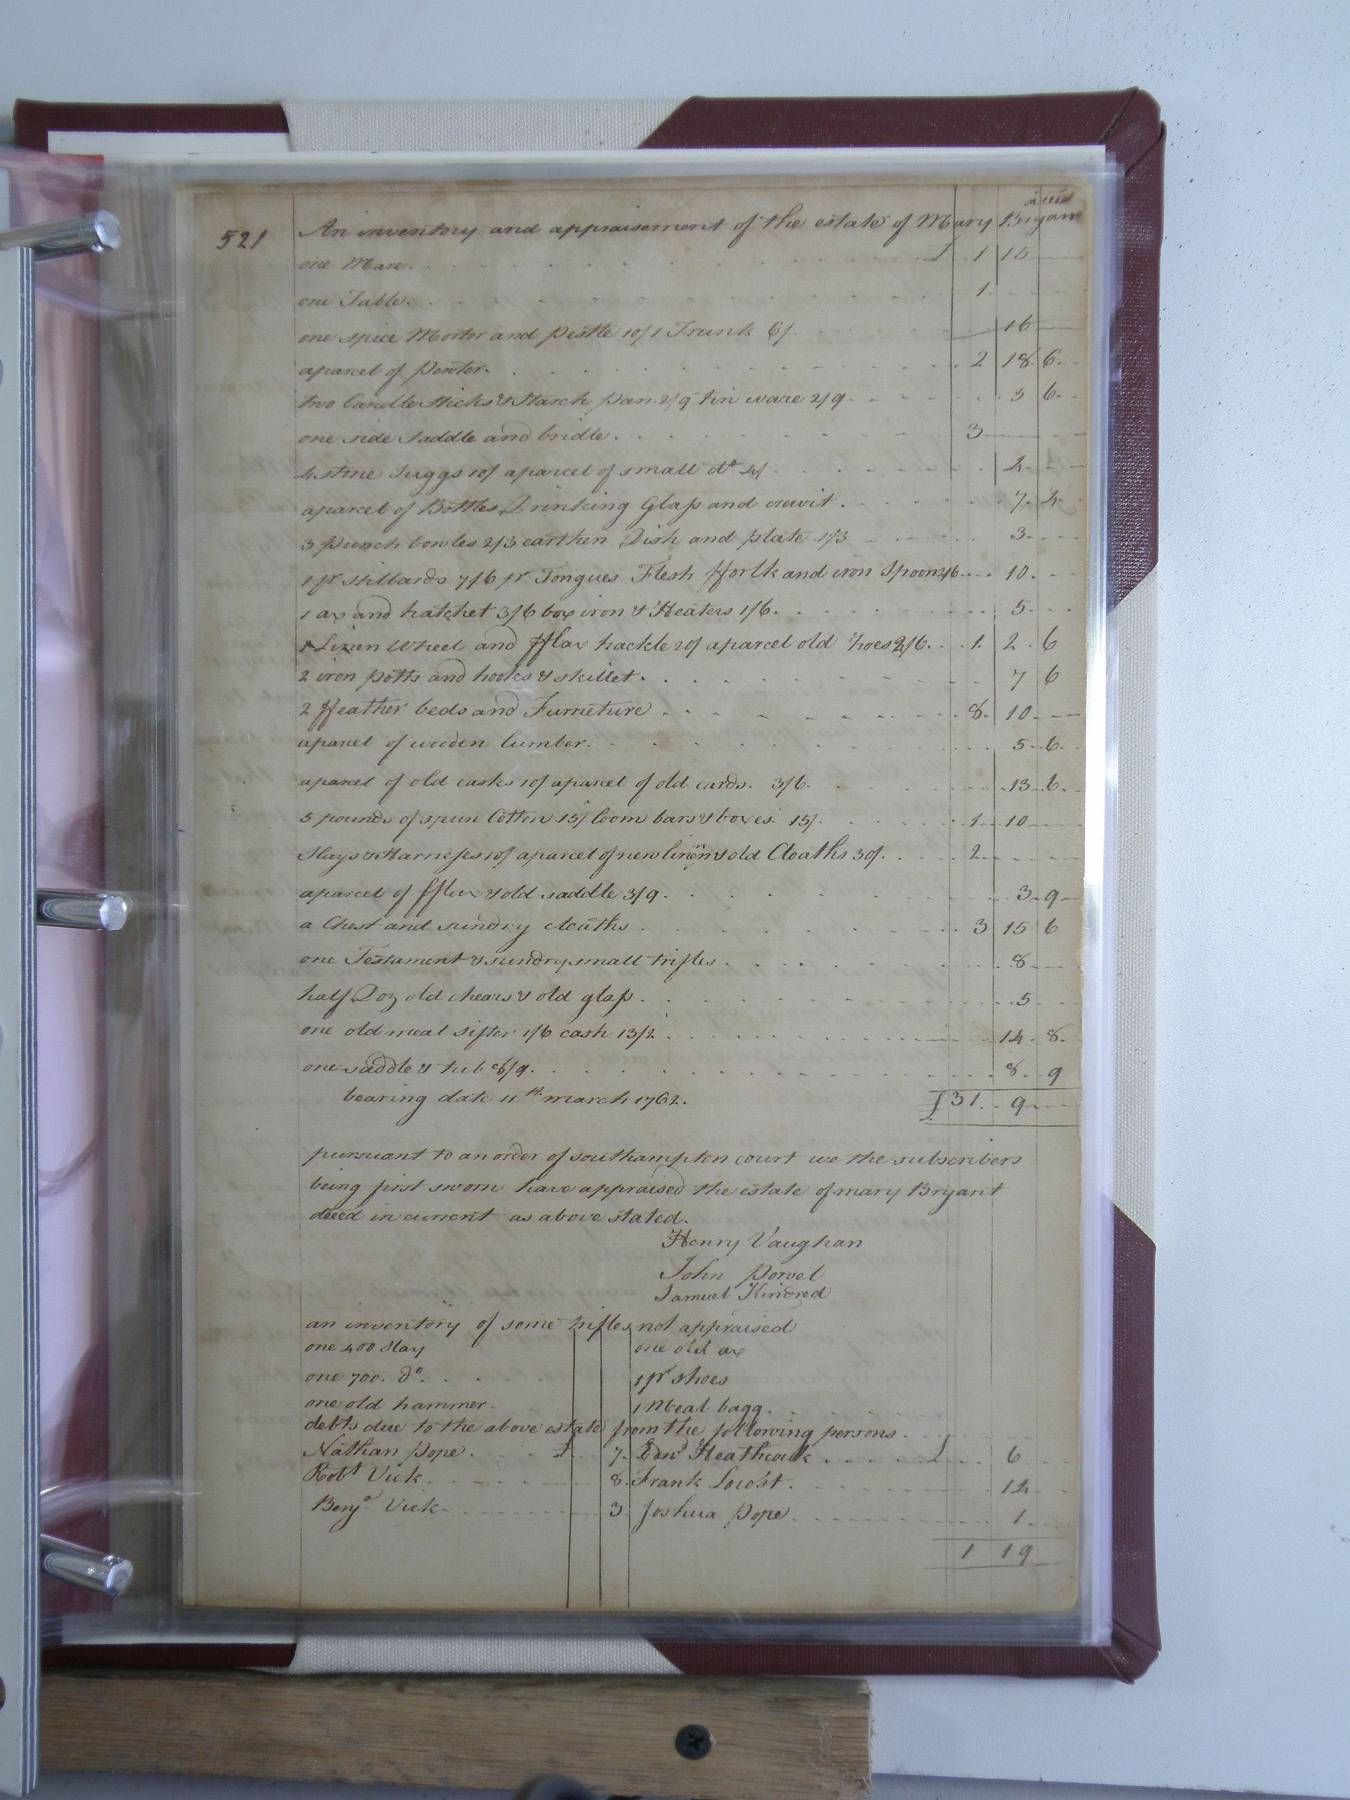 decd
521 An inventory and appraisement of the estate of Mary Bryant
one Mare. £ 1 15
one Table. 1
one spice Mortor and pestle 10/ 1 Trunk 6/. 16
a parcel of Pewter. 2 18 6
two Candlesticks & Starch pan 2/9 tin ware 2/9. 5 6
one side saddle and bridle. 3
4 stone Juggs 10/ a parcel of small do 4/.
a parcel of Bottles Drinking Glass and crewit. 7 4
3 punch bowles 2/3 earthen Dish and plate 1/3 3
1 pr stillards 7/6 pr Tongues Flesh fforlk and iron Spoon 2/6 10
1 ax and hatchet 3/6 box iron & Heaters 1/6. 5
1 Linen Wheel and fflax hackle 20/ a parcel old hoes 2/6. 1 2 6
2 iron potts and hooks & skillet. 7 6
2 ffeather beds and Furneture 8 10
a parcel of wooden lumber. 5 6
a parcel of old casks 10/ a parcel of old cards. 3/6. 13 6
5 pounds of spun Cotten 15/ loom bars & boxes 15/. 1 10
Slays & Harnesses 10/ a parcel of new linen & old Cloaths 30/. 2
a parcel of fflax & old saddle 3/9. 3 9
a Chest and sundry cloaths 3 15 6
one Testament & sundry small trifles. 8
half Doz old chears & old glass. 5
one old meal sifter 1/6 cash 13/2. 14 8
one saddle & tub 8/9. 8 9
bearing date 11th march 1762. £31 9
pursuant to an order of southampton court we the subscribers
being first sworn have appraised the estate of mary Bryant
deced in current as above stated.
Henry Vaughan
John
Samuel Kindred
an inventory of some trifles not appraised
one 400 slay one old ax
one 700. do. 1 pr shoes
one old hammer. 1 Meal bagg.
debts due to the above estate from the following persons.
Nathan Pope. £ 7 Edwd Heathcock £ 6
Robt Vick 8 Frank Locost. 12
Benja Vick 3 Joshua Pope. 1
1 19